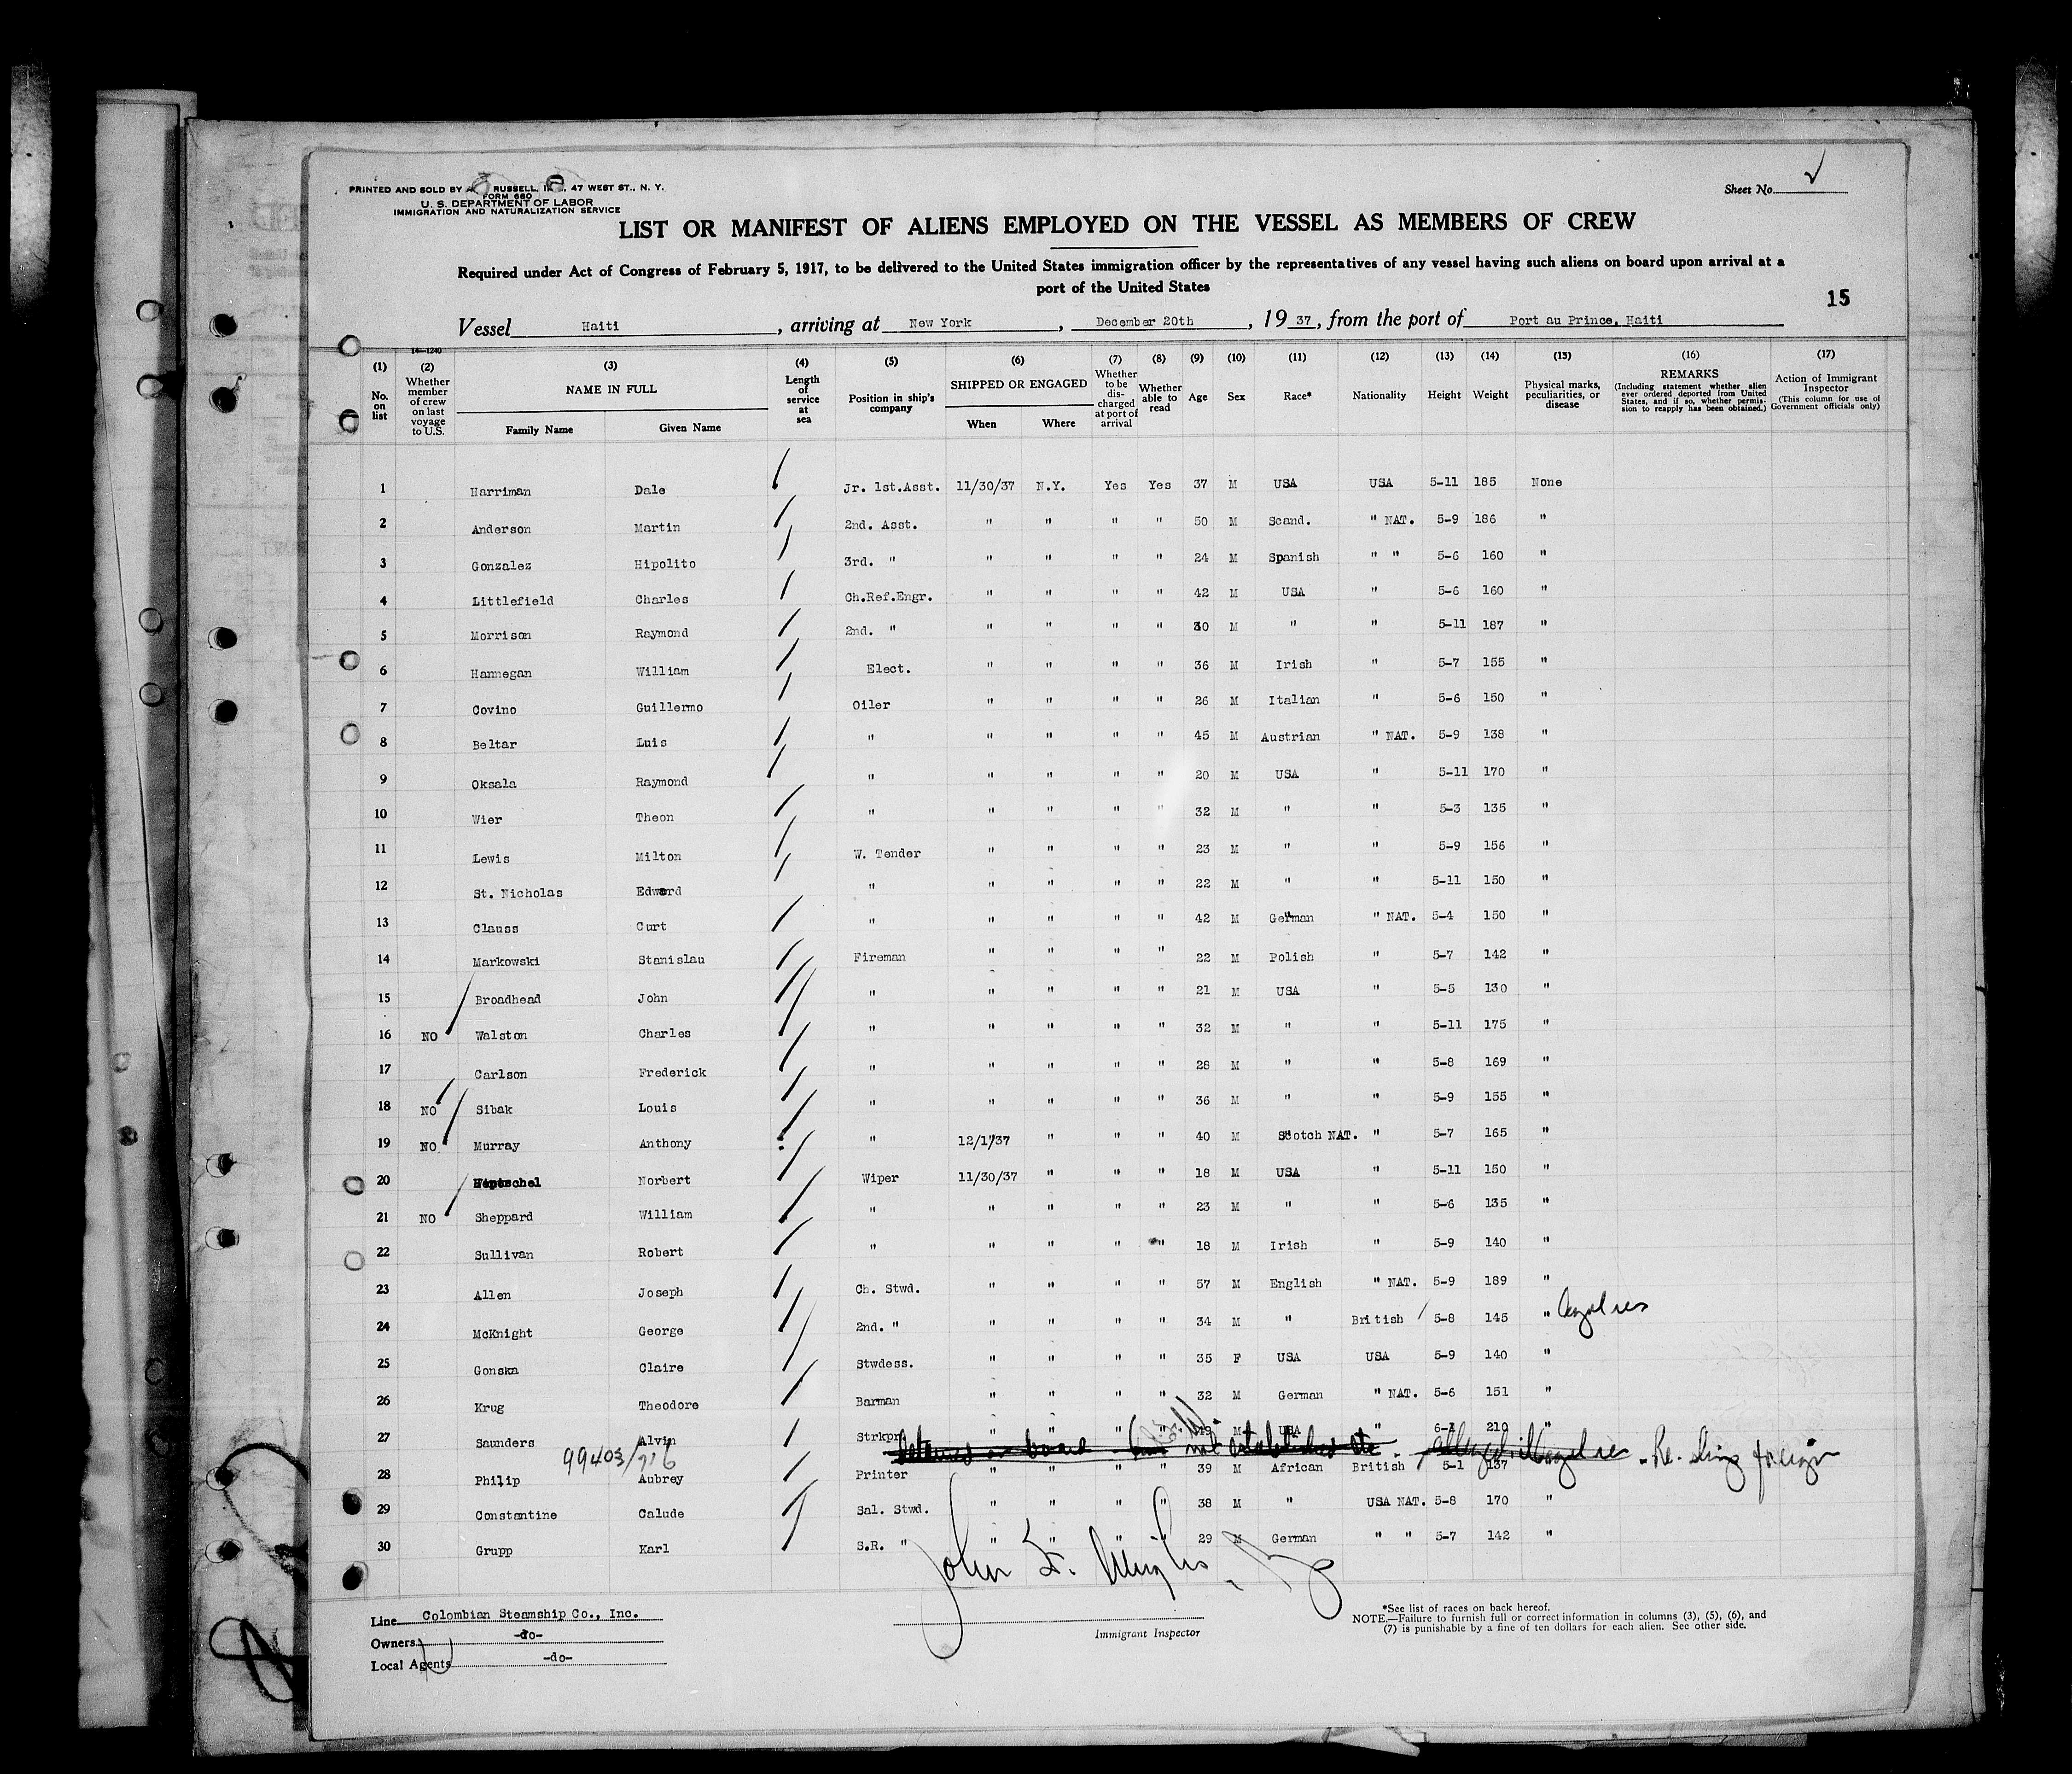 PRINTED AND SOLD BY RUSSELL, 47 WEST ST., N. Y.
FORM 680
U. S. DEPARTMENT OF LABOR
IMMIGRATION AND NATURALIZATION SERVICE
Sheet No.
LIST OR MANIFEST OF ALIENS EMPLOYED ON THE VESSEL AS MEMBERS OF CREW
Required under Act of Congress of February 5, 1917, to be delivered to the United States immigration officer by the representatives of any vessel having such aliens on board upon arrival at a
port of the United States
15
Vessel Haiti, arriving at New York, December 20th, 1937, from the port of Port au Prince, Haiti
14—1240
(1) (2) (3) (4) (5) (6) (7) (8) (9) (10) (11) (12) (13) (14) (15) (16) (17)
No. on list
Whether member of crew on last voyage to U.S.
NAME IN FULL
Family Name Given Name
Length of service at sea
Position in ship's company
SHIPPED OR ENGAGED
When Where
Whether to be discharged at port of arrival
Whether able to read
Age Sex Race* Nationality Height Weight
Physical marks, peculiarities, or disease
REMARKS
(Including statement whether alien ever ordered deported from United States, and if so, whether permission to reapply has been obtained.)
Action of Immigrant Inspector
(This column for use of Government officials only)
1 Harriman Dale Jr. 1st.Asst. 11/30/37 N.Y. Yes Yes 37 M USA USA 5-11 185 None
2 Anderson Martin 2nd. Asst. " " " " 50 M Scand. " NAT. 5-9 186 "
3 Gonzalez Hipolito 3rd. " " " " " 24 M Spanish " " 5-6 160 "
4 Littlefield Charles Ch.Ref.Engr. " " " " 42 M USA " 5-6 160 "
5 Morrison Raymond 2nd. " " " " " 30 M " " 5-11 187 "
6 Hannegan William Elect. " " " " 36 M Irish " 5-7 155 "
7 Covino Guillermo Oiler " " " " 26 M Italian " 5-6 150 "
8 Beltar Luis " " " " " 45 M Austrian " NAT. 5-9 138 "
9 Oksala Raymond " " " " " 20 M USA " 5-11 170 "
10 Wier Theon " " " " " 32 M " " 5-3 135 "
11 Lewis Milton W. Tender " " " " 23 M " " 5-9 156 "
12 St. Nicholas Edward " " " " " 22 M " " 5-11 150 "
13 Clauss Curt " " " " " 42 M German " NAT. 5-4 150 "
14 Markowski Stanislau Fireman " " " " 22 M Polish " 5-7 142 "
15 Broadhead John " " " " " 21 M USA " 5-5 130 "
16 NO Walston Charles " " " " " 32 M " " 5-11 175 "
17 Carlson Frederick " " " " " 28 M " " 5-8 169 "
18 NO Sibak Louis " " " " " 36 M " " 5-9 155 "
19 NO Murray Anthony " 12/1/37 " " " 40 M Scotch NAT. " 5-7 165 "
20 Norbert Wiper 11/30/37 " " " 18 M USA " 5-11 150 "
21 NO Sheppard William " " " " " 23 M " " 5-6 135 "
22 Sullivan Robert " " " " " 18 M Irish " 5-9 140 "
23 Allen Joseph Ch. Stwd. " " " " 57 M English " NAT. 5-9 189 "
24 McKnight George 2nd. " " " " " 34 M " British 5-8 145 "
25 Gonska Claire Stwdess. " " " " 35 F USA USA 5-9 140 "
26 Krug Theodore Barman " " " " 32 M German " NAT. 5-6 151 "
27 Saunders Alvin Strkpr. " " " " M USA " 210 "
99403/716
Detained on board not established
Re. ship foreign
28 Philip Aubrey Printer " " " " 39 M African British 5-1 137
29 Constantine Calude Sal. Stwd. " " " " 38 M " USA NAT. 5-8 170 "
30 Grupp Karl S.R. " " " " " 29 M German " " 5-7 142 "
Line Colombian Steamship Co., Inc.
Owners -do-
Local Agents -do-
Immigrant Inspector
*See list of races on back hereof.
NOTE.—Failure to furnish full or correct information in columns (3), (5), (6), and
(7) is punishable by a fine of ten dollars for each alien. See other side.